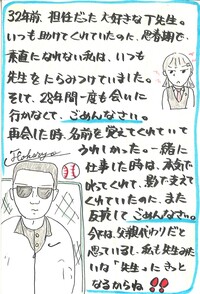 32年前、担任だった大好きなT先生。
いつも助けてくれていたのに、思春期で、
素直になれない私は、いつも
先生をにらみつけていました。
そして、28年間一度も会いに
行かなくて、ごめんなさい。
再会した時、名前を覚えてくれていて
うれしかった。一緒に
仕事した時は、本気で
叱ってくれて、影で支えて
くれていたのに、また
反抗してごめんなさい。
今では、父親代わりだと
思っているし、私も先生みた
いな「先生」に、きっと
なるからね!!